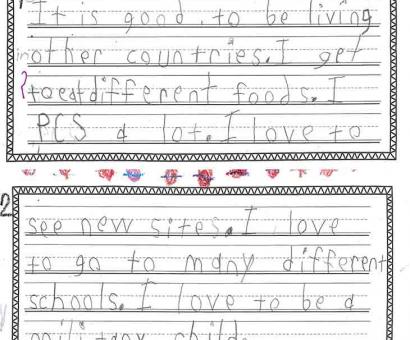 It is good to be living
in other countries. I get
to eat different foods. I
PCS a lot. I love to
2
see new sites. I love
to go to many different
schools. I love to be a
military child.